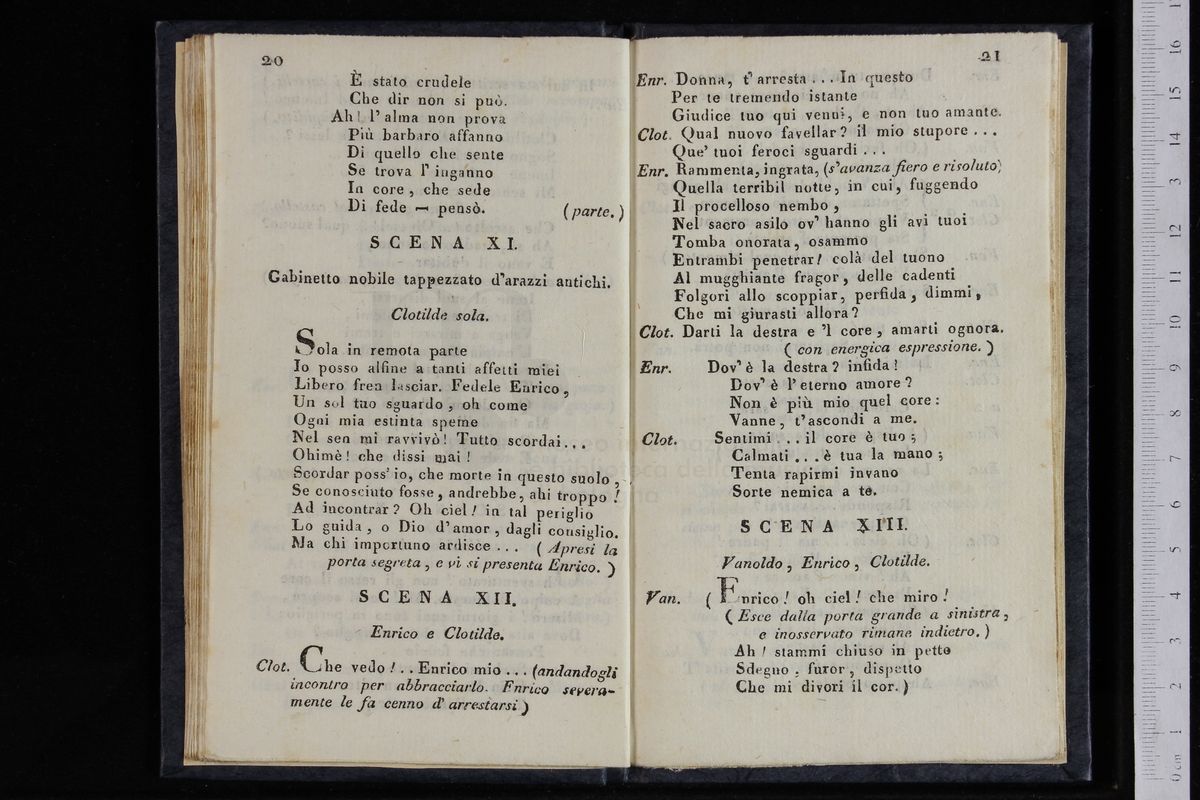 20
È stato crudele
Che dir non si può.
Ah! l'alma non prova
Più barbaro affanno
Di quello che sente
Se trova l'inganno
In core, che sede
Di fede — pensò. (parte.)
SCENA XI.
Gabinetto nobile tappezzato d'arazzi antichi.
Clotilde sola.
Sola in remota parte
Io posso alfine a tanti affetti miei
Libero fren lasciar. Fedele Enrico,
Un sol tuo sguardo, oh come
Ogni mia estinta speme
Nel sen mi ravvivò! Tutto scordai...
Ohimè! che dissi mai!
Scordar poss'io, che morte in questo suolo,
Se conosciuto fosse, andrebbe, ahi troppo!
Ad incontrar? Oh ciel! in tal periglio
Lo guida, o Dio d'amor, dagli consiglio.
Ma chi importuno ardisce ... (Apresi la
porta segreta, e vi si presenta Enrico.)
SCENA XII.
Enrico e Clotilde.
Clot. Che vedo!.. Enrico mio ... (andandogli
incontro per abbracciarlo. Enrico severa-
mente le fa cenno d'arrestarsi)
21
Enr. Donna, t'arresta... In questo
Per te tremendo istante
Giudice tuo qui venni, e non tuo amante.
Clot. Qual nuovo favellar? il mio stupore ...
Que' tuoi feroci sguardi ...
Enr. Rammenta, ingrata, (s'avanza fiero e risoluto)
Quella terribil notte, in cui, fuggendo
Il procelloso nembo,
Nel sacro asilo ov'hanno gli avi tuoi
Tomba onorata, osammo
Entrambi penetrar! colà del tuono
Al mugghiante fragor, delle cadenti
Folgori allo scoppiar, perfida, dimmi,
Che mi giurasti allora?
Clot. Darti la destra e 'l core, amarti ognora.
(con energica espressione.)
Enr. Dov'è la destra? infida!
Dov'è l'eterno amore?
Non è più mio quel core:
Vanne, t'ascondi a me.
Clot. Sentimi... il core è tuo;
Calmati...è tua la mano;
Tenta rapirmi invano
Sorte nemica a te.
SCENA XIII.
Vanoldo, Enrico, Clotilde.
Van. (Enrico! oh ciel! che miro!
(Esce dalla porta grande a sinistra,
e inosservato rimane indietro.)
Ah! stammi chiuso in petto
Sdegno, furor, dispetto
Che mi divori il cor.)